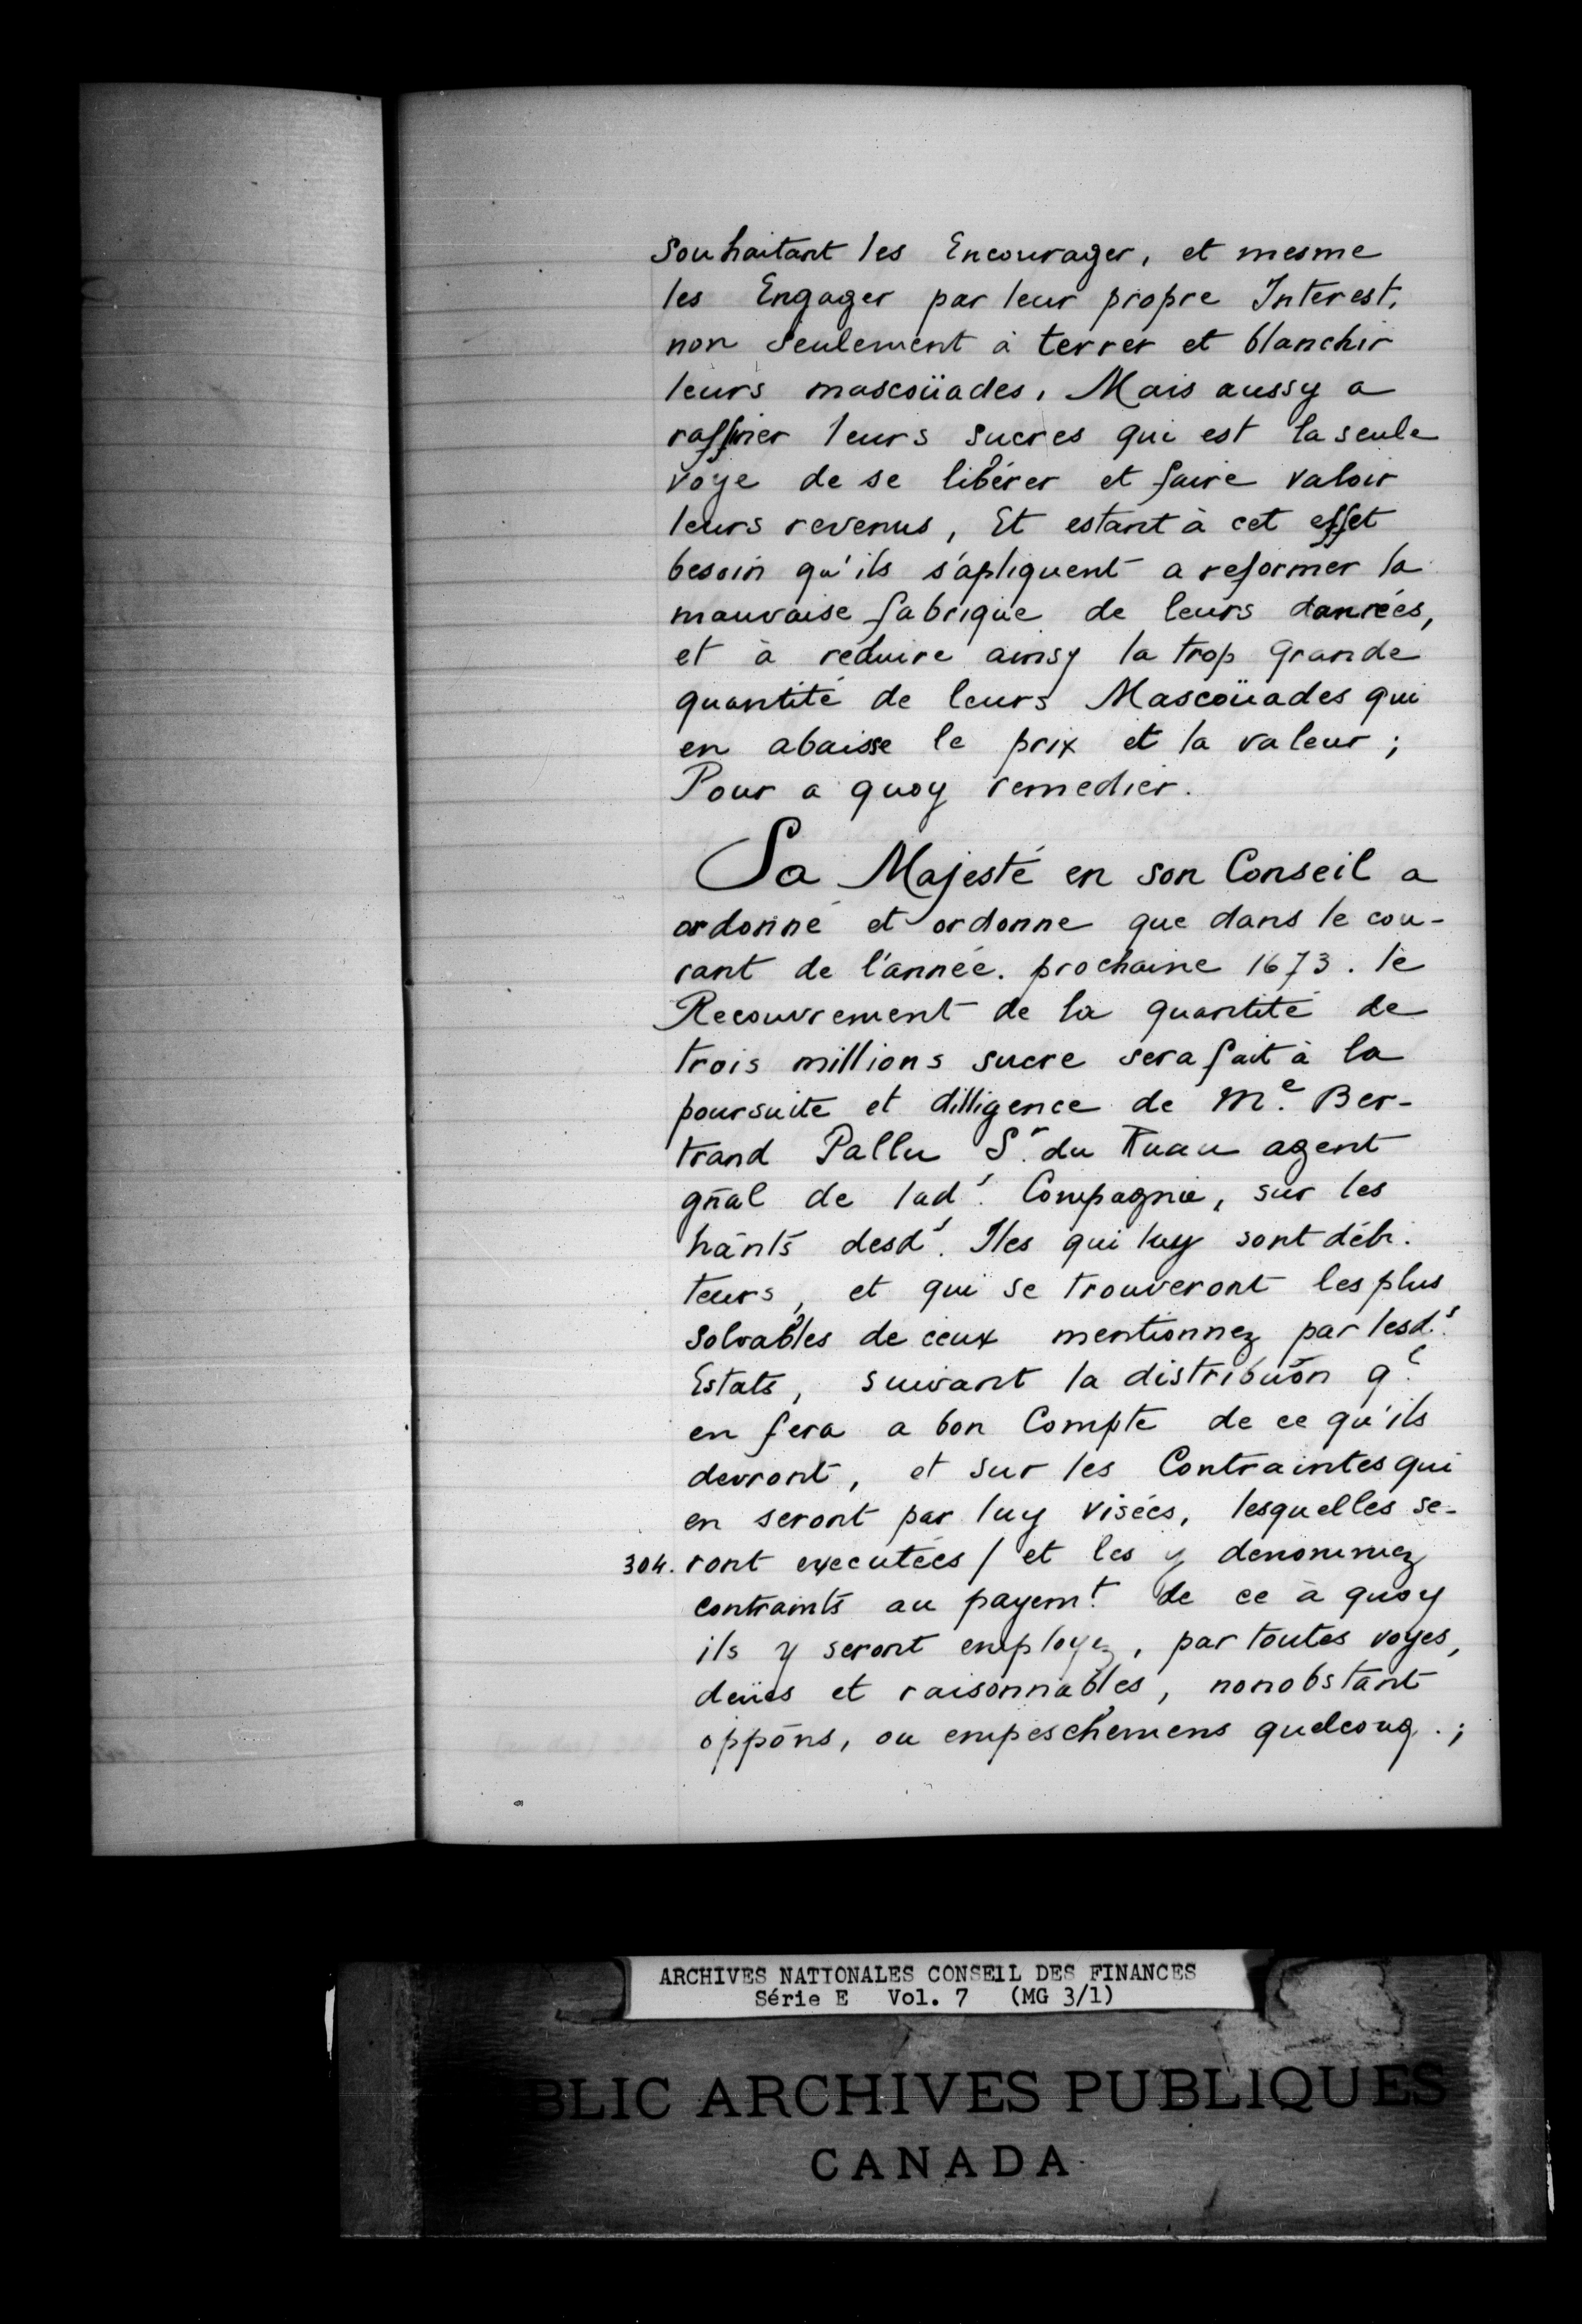 Souhaitant les Encourager, et mesme
les Engager par leur propre Interest,
non Seulement à terrer et blanchir
leurs mascoüades, Mais aussy a
raffiner leurs sucres qui est la seule
voye de se libérer et faire valoir
leurs revenus, Et estant à cet effet
besoin qu'ils s'apliquent a reformer la
mauvaise fabrique de leurs danrées,
et à reduire ainsy la trop grande
quantité de leurs Mascoüades qui
en abaisse le prix et la valeur ;
Pour a quoy remedier.
Sa Majesté en son Conseil a
ordonné et ordonne que dans le cou-
rant de l'année. prochaine 1673. le
Recouvrement de la quantité de
trois millions sucre sera fait à la
poursuite et dilligence de Me. Ber-
trand Pallu Sr. du Ruau agent
gñal de lad. Compagnie, sur les
hãnts desd. Iles qui luy sont débi.
teurs, et qui se trouveront les plus
Solvables de ceux mentionnez par lesds.
Estats, suivant la distribuõn q.
en fera a bon Compte de ce qu'ils
devront, et sur les Contraintes qui
en seront par luy visées, lesquelles se-
304. ront executées / et les y denommez
contraints au payemt. de ce à quoy
ils y seront employez, par toutes voyes,
deües et raisonnables, nonobstant
oppõns, ou empeschemens quelconq. ;
ARCHIVES NATIONALES CONSEIL DES FINANCES
Série E Vol. 7 (MG 3/1)
BLIC ARCHIVES PUBLIQUES
CANADA